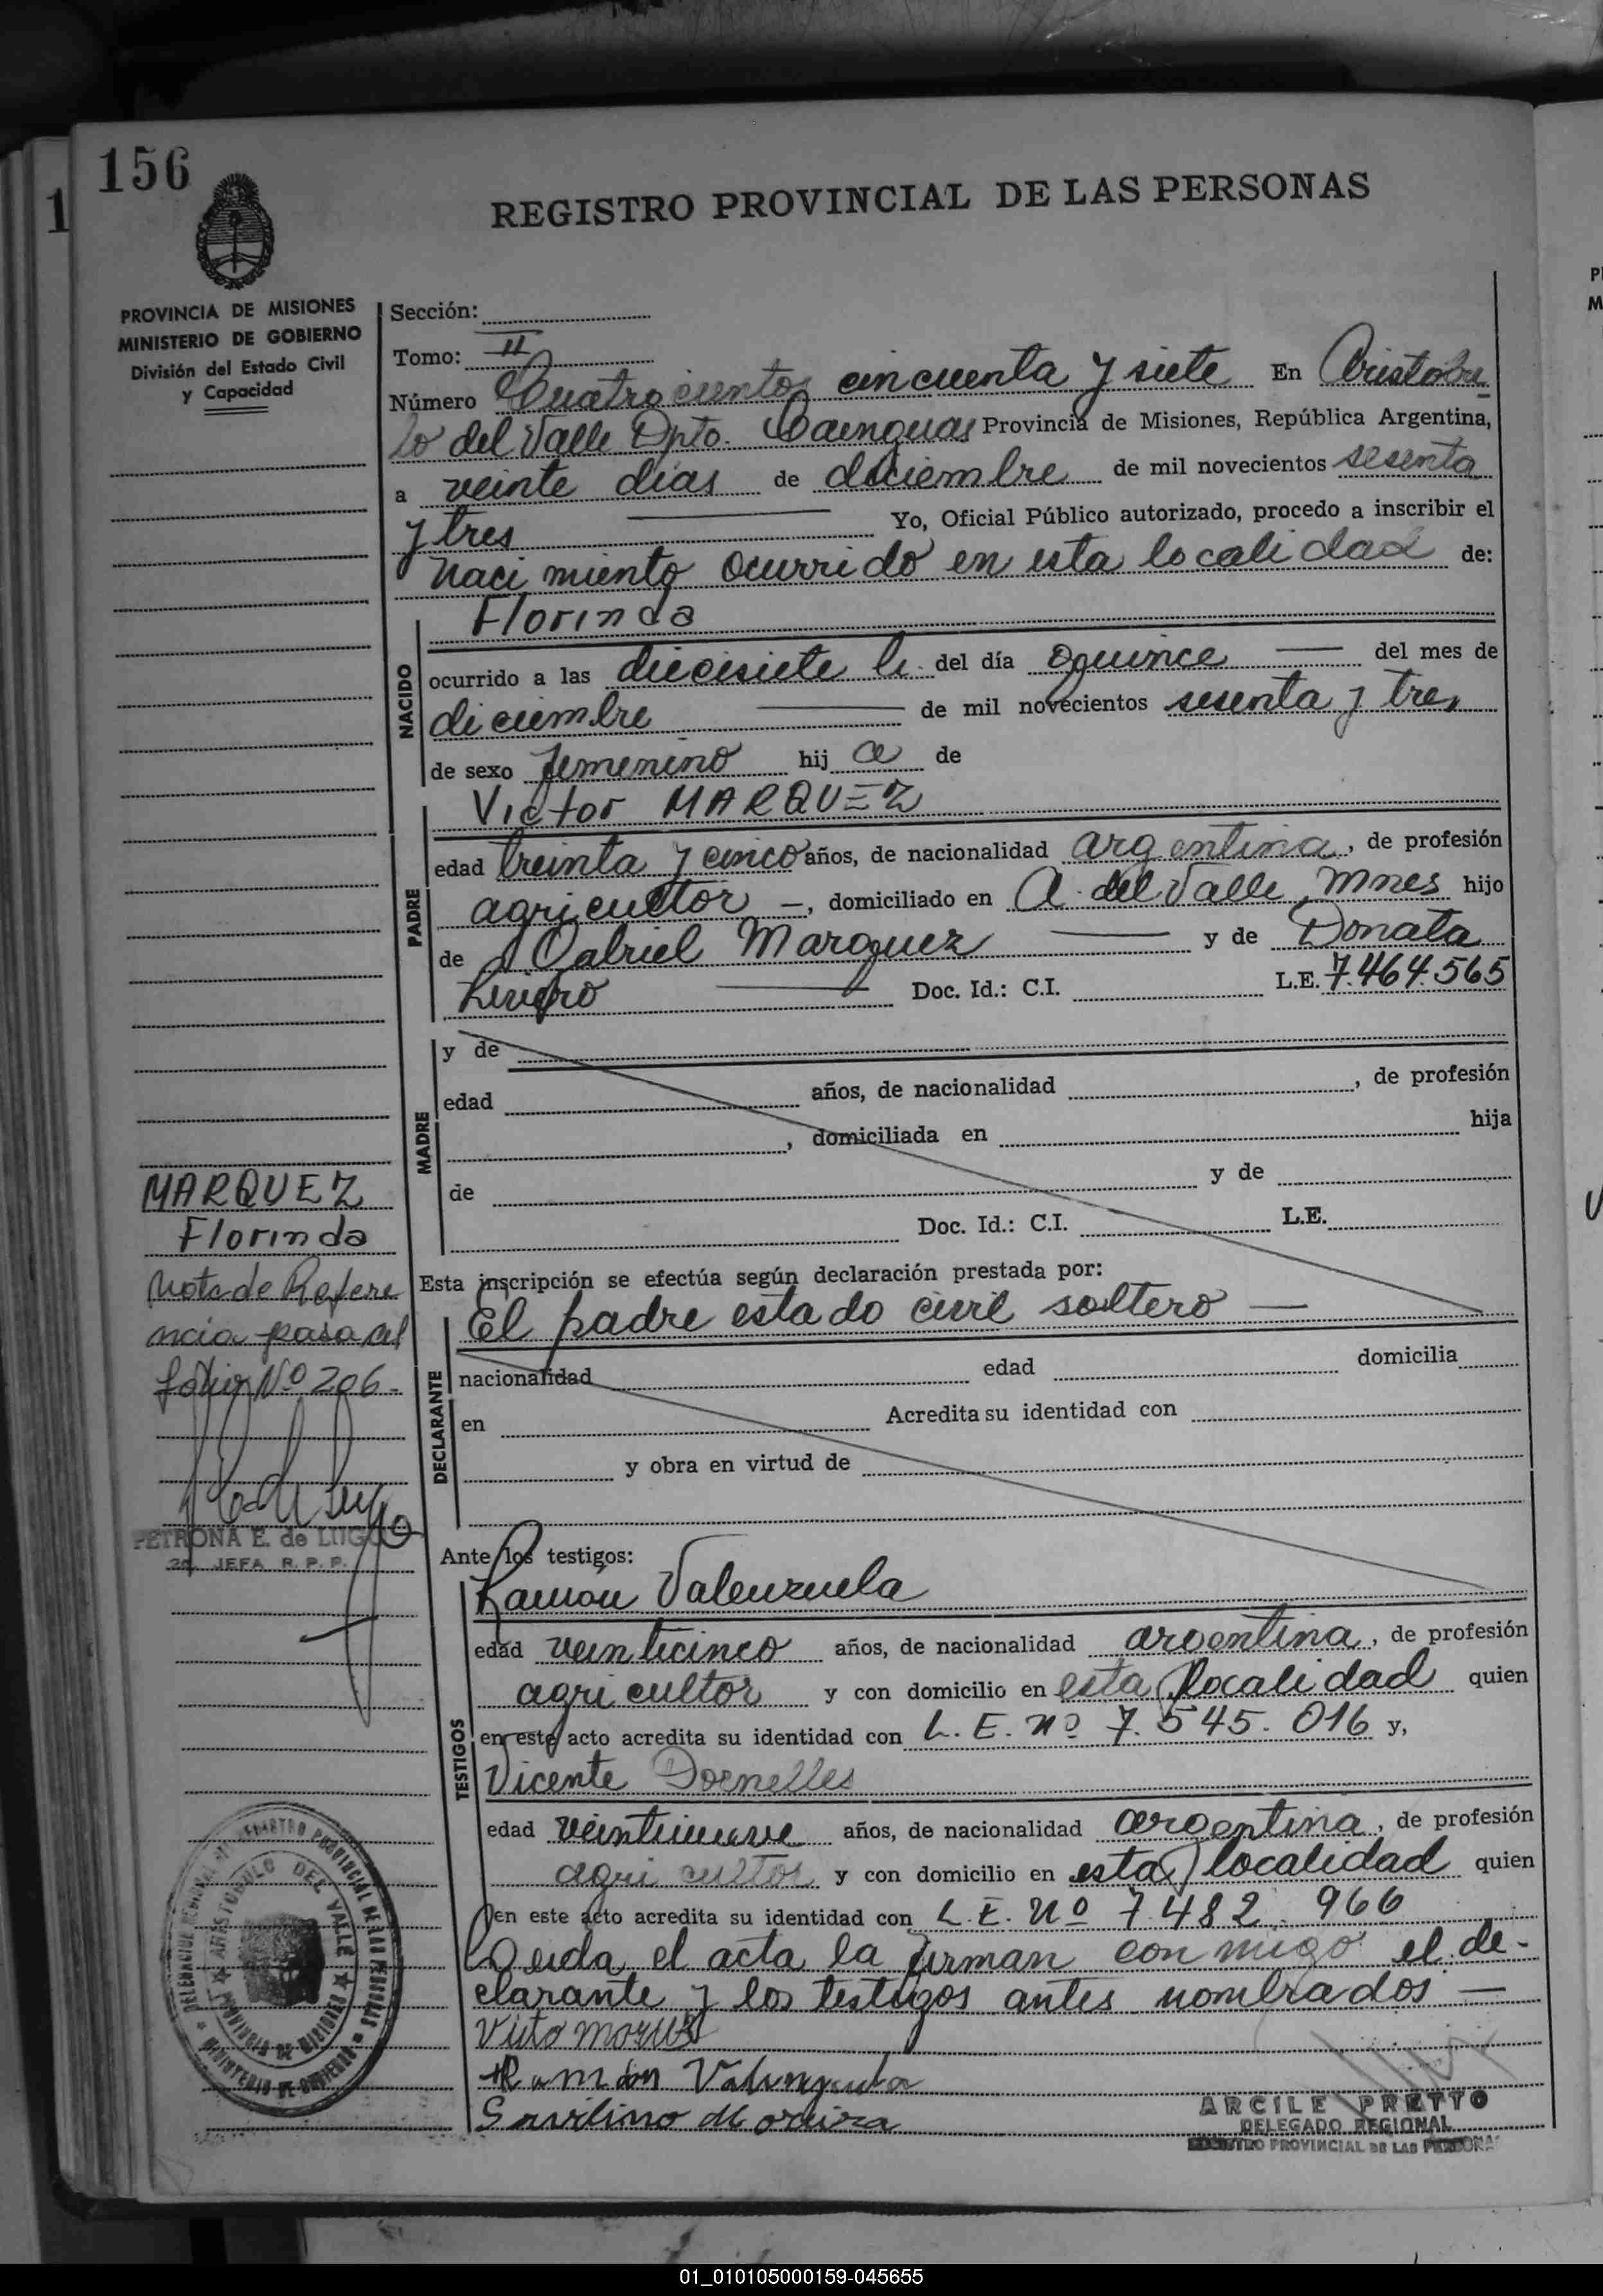 156
1
REGISTRO PROVINCIAL DE LAS PERSONAS
PROVINCIA DE MISIONES
MINISTERIO DE GOBIERNO
División del Estado Civil
y Capacidad
Sección:
Tomo: II
Número Cuatrocientos cincuenta y siete En Aristobu
lo del Valle Dpto. Cainguas Provincia de Misiones, República Argentina,
a veinte días de diciembre de mil novecientos sesenta
y tres Yo, Oficial Público autorizado, procedo a inscribir el
nacimiento ocurrido en esta localidad de:
Florinda
NACIDO
ocurrido a las diecisiete h. del día quince del mes de
diciembre de mil novecientos sesenta y tres
de sexo femenino hij a de
Victor MARQUEZ
PADRE
edad treinta y cinco años, de nacionalidad argentina, de profesión
agricultor –, domiciliado en A. del Valle, Mnes hijo
de Gabriel Marquez y de Donata
Doc. Id.: C.I. L.E. 7.464.565
MADRE
y de
edad años, de nacionalidad , de profesión
, domiciliada en hija
de y de
Doc. Id.: C.I. L.E.
MARQUEZ
Florinda
Nota de Refere
ncia pasa al
folio Nº 206-
PETRONA E. de LUGO
2a. JEFA R. P. P.
Esta inscripción se efectúa según declaración prestada por:
El padre estado civil soltero —
DECLARANTE
nacionalidad edad domicilia
en Acredita su identidad con
y obra en virtud de
Ante los testigos:
TESTIGOS
Ramón Valenzuela
edad veinticinco años, de nacionalidad argentina, de profesión
agricultor y con domicilio en esta localidad quien
en este acto acredita su identidad con L. E. Nº 7.545.016 y,
Vicente Dornelles
edad veintinueve años, de nacionalidad argentina, de profesión
agricultor y con domicilio en esta localidad quien
en este acto acredita su identidad con L. E. Nº 7.482.966
Leida el acta la firman conmigo el de-
clarante y los testigos antes nombrados —
Ramón Valenzuela
ARCILE PRETTO
DELEGADO REGIONAL
REGISTRO PROVINCIAL DE LAS PERSONAS
REGISTRO PROVINCIAL DE LAS PERSONAS
ARISTOBULO DEL VALLE
PROVINCIA DE MISIONES
MINISTERIO DE GOBIERNO
01_010105000159-045655